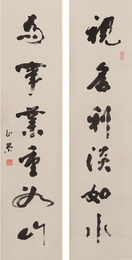 視名利淡如水
為事業重如山